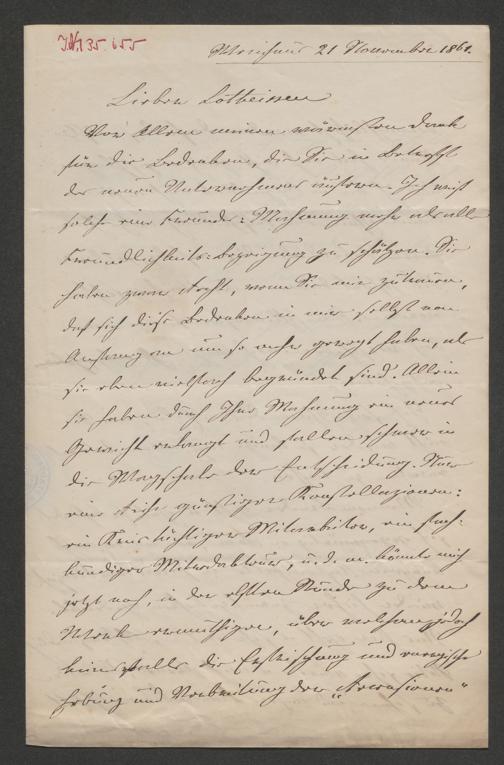 I.N. 135.655
21 November 1861.
Lieber Lotheissen
Vor Allem meinen wärmsten Dank
für die Bedenken, die Sie in Betreff
des neuen Unternehmens äußern. Ich weiß
solche eine Freundes-Mahnung mehr als alle
Freundlichkeits-Bezeigung zu schätzen. Sie
haben ganz Recht, wenn Sie mir zutrauen,
daß sich diese Bedenken in mir selbst von
Anfang an um so mehr geregt haben, als
sie eben vielfach begründet sind. Allein
sie haben durch Ihre Mahnung ein neues
Gewicht erlangt und fallen schwer in
die Wagschale der Entscheidung. Nur
eine Reihe günstiger Konstellazionen:
ein Kreis tüchtiger Mitarbeiter, ein fach-
kundiger Mitredakteur, u. d. m. könnte mich
jetzt noch, in der elften Stunde zu dem
Werk ermuthigen, über welchem jedoch
keinesfalls die Erfrischung und energische
Hebung und Verbreitung der „Rezensionen"